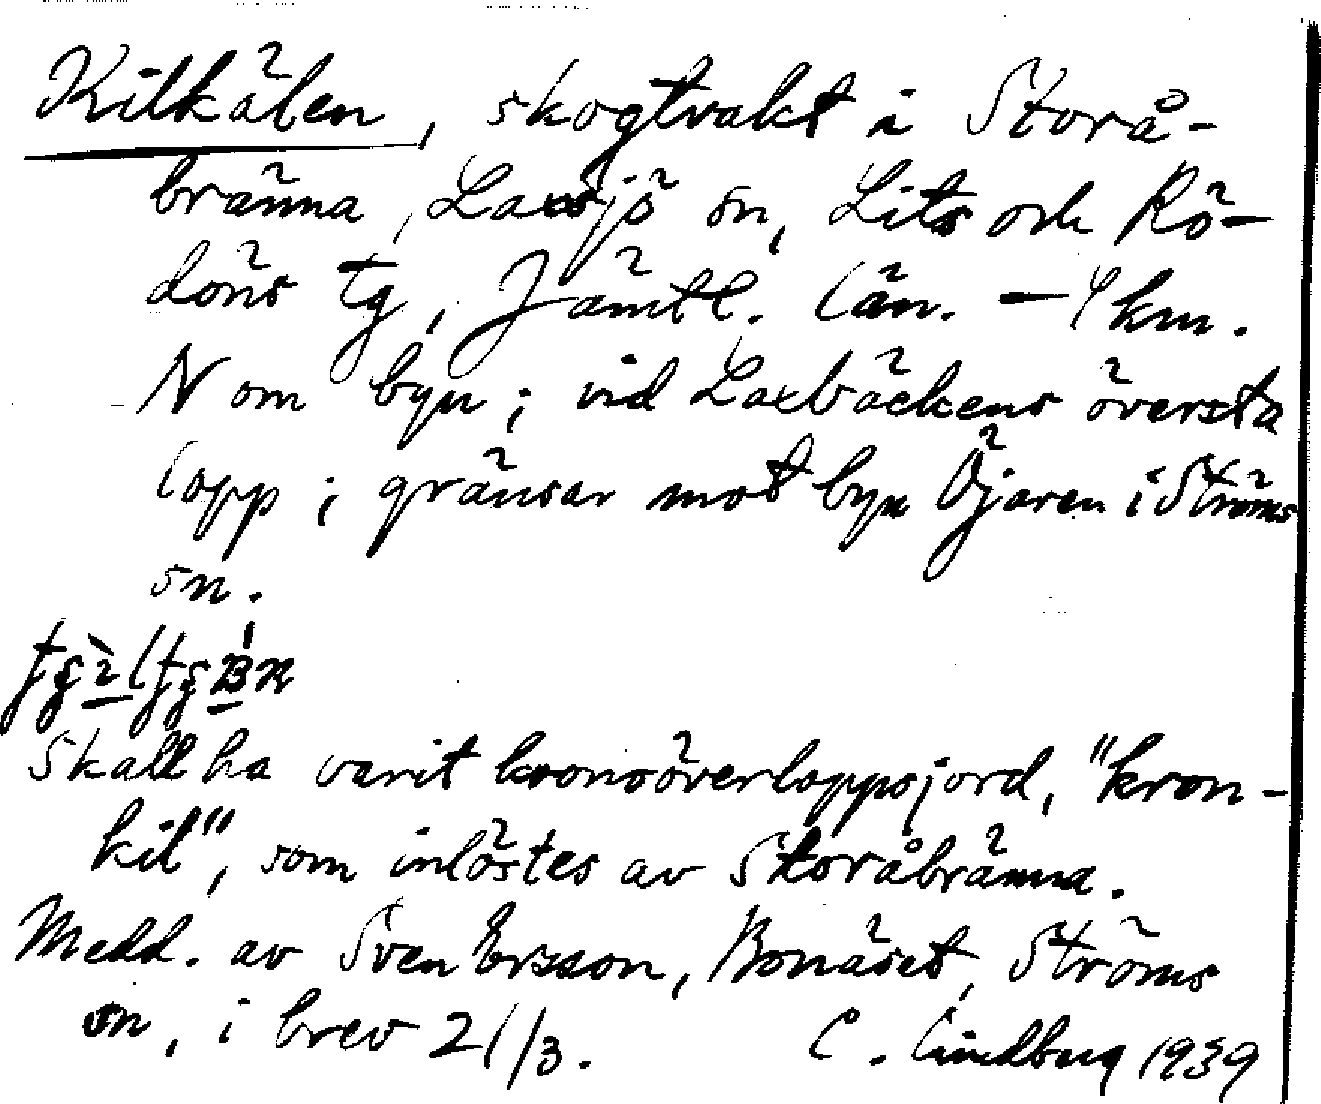 Kilkälen, skogtrakt i Storå-
bränna, Laxsjö sn, Lits och Rö-
döns tg, Jämtl. län. – 4 km.
N om byn; vid Laxbäckens översta
lopp; gränsar mot byn Öjaren i Ströms
sn.
Skall ha varit kronoöverloppsjord, "kron-
kil", som inlöstes av Storåbränna.
Medd. av Sven Ersson, Bonäset, Ströms
sn, i brev 21/3. C. Lindberg 1939